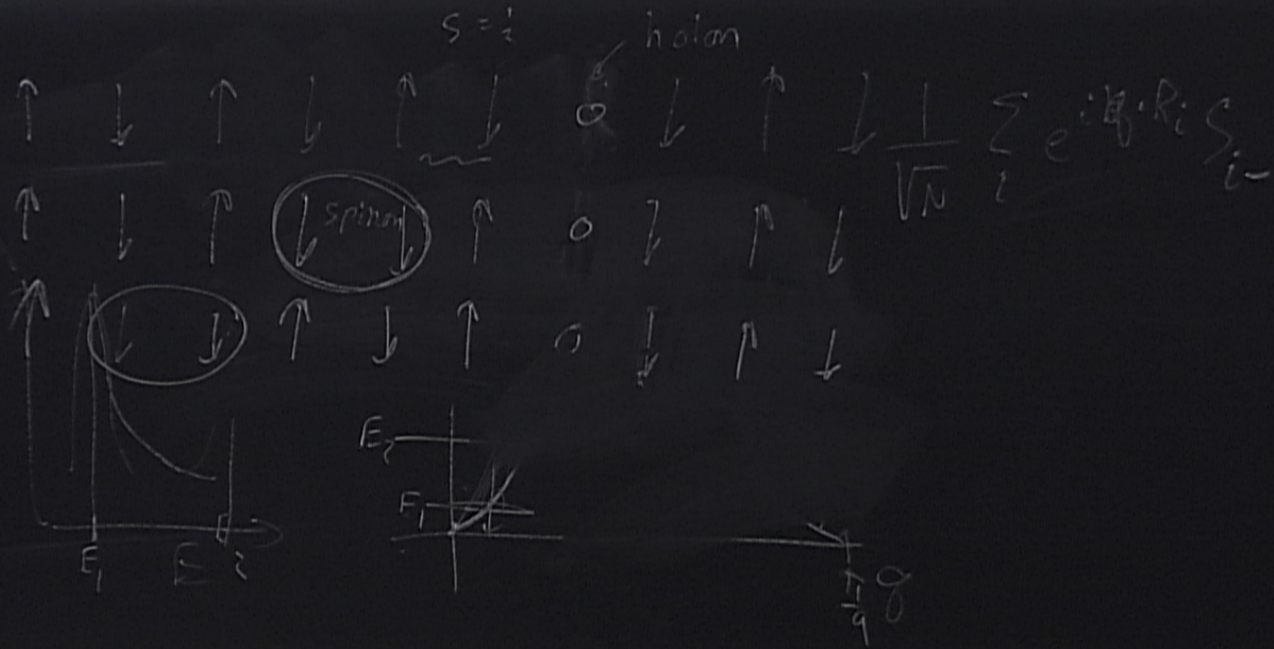 S = 1/2 holon
↑ ↓ ↑ ↓ ↑ ↓ o ↓ ↑ ↓ 1/√N Σ_i e^{iq·R_i} S_{i-}
↑ ↓ ↑ ↓ spinon ↓ ↑ o ↓ ↑ ↓
↓ ↓ ↑ ↓ ↑ o ↓ ↑ ↓
E₂
E₁
E₁ E₂
π/a q